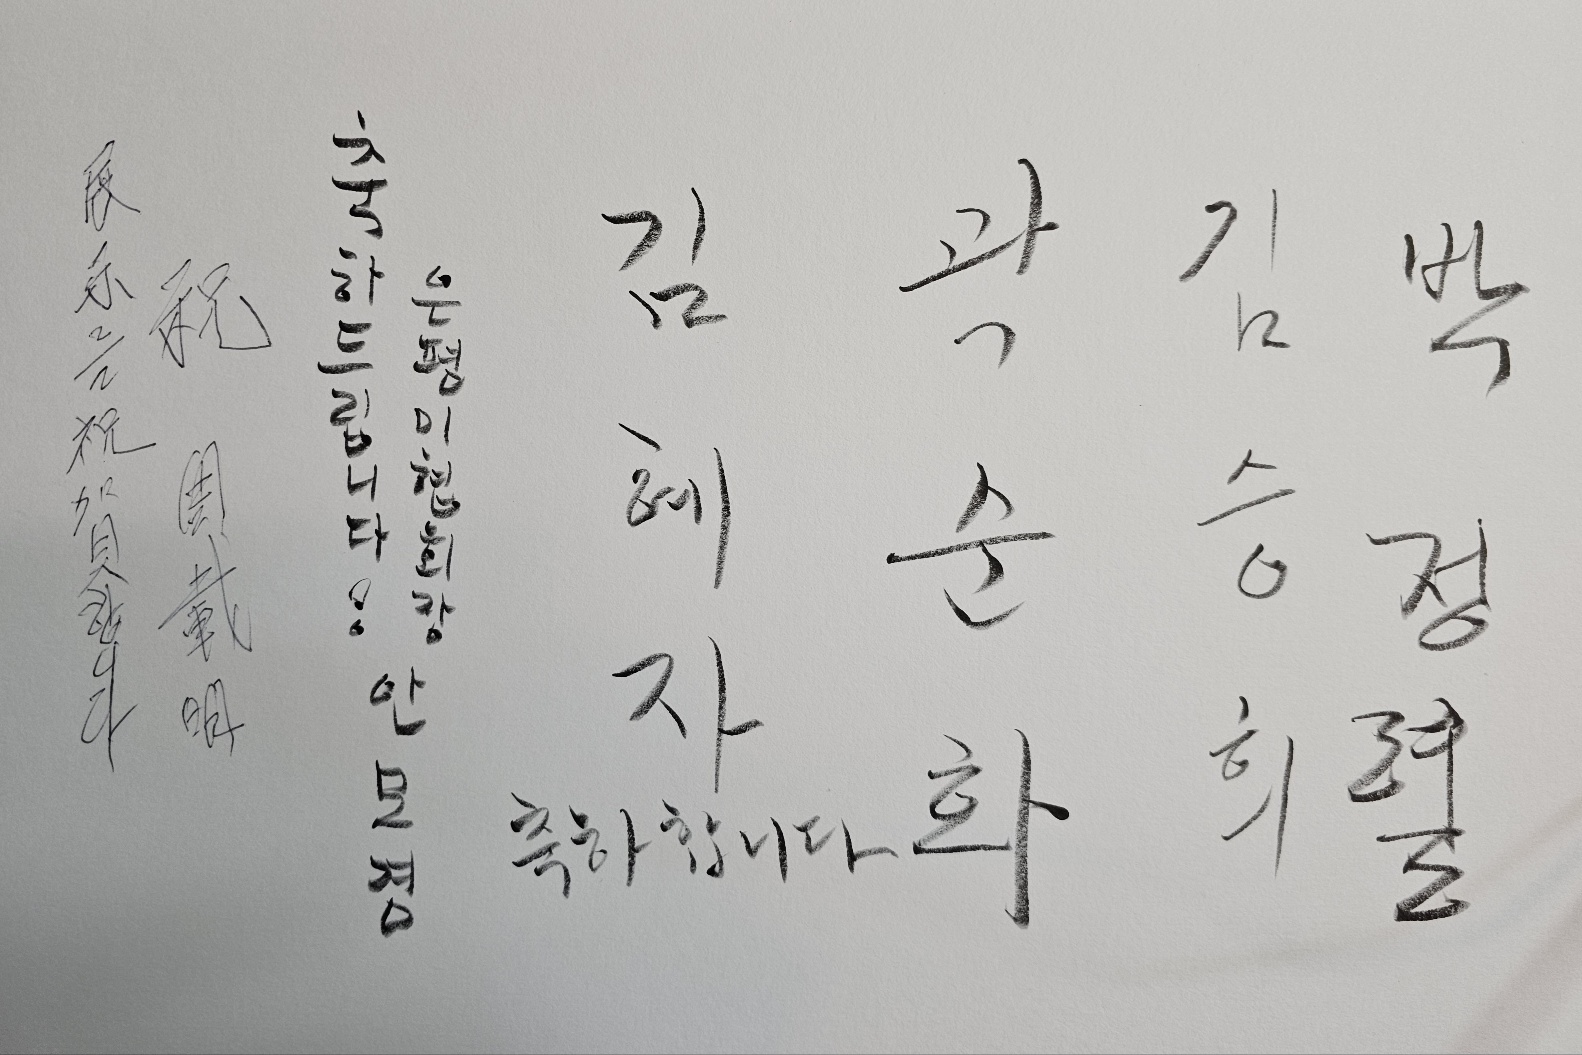 박정렬
김승희
곽순화
김혜자
축하합니다
은평미협회장
축하드립니다
안모경
祝 周載明
展示를 祝賀합니다